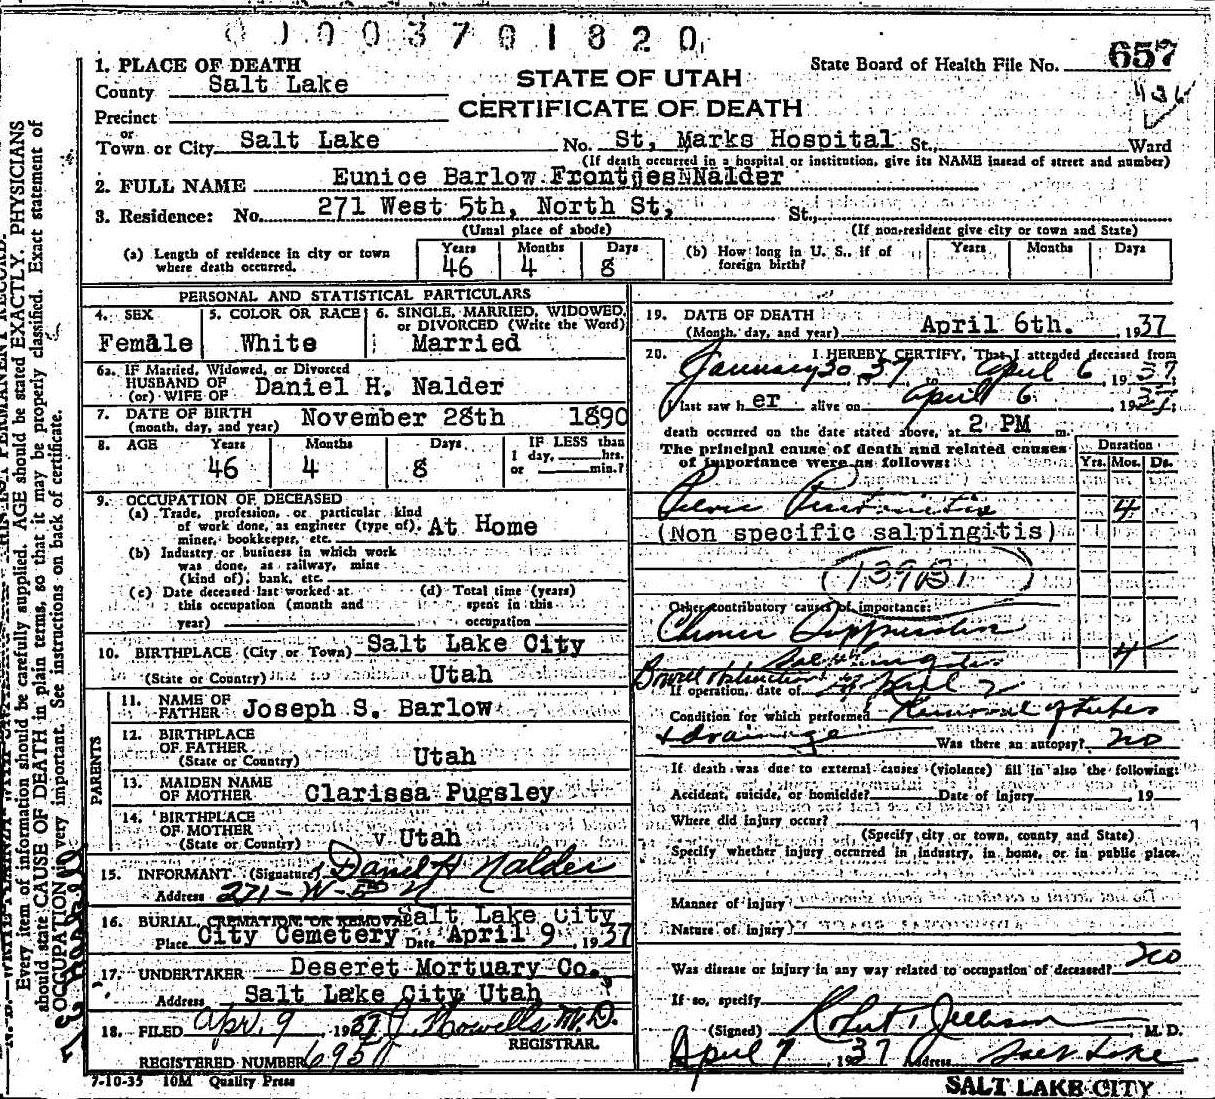 0 1 0 0 3 7 0 1 8 2 0
1. PLACE OF DEATH
County Salt Lake
Precinct
or
Town or City Salt Lake
STATE OF UTAH
CERTIFICATE OF DEATH
State Board of Health File No. 657
436
No. St, Marks Hospital St., Ward
(If death occurred in a hospital or institution, give its NAME instead of street and number)
2. FULL NAME Eunice Barlow Frontjes Nalder
3. Residence: No. 271 West 5th, North St, St.,
(Usual place of abode) (If non-resident give city or town and State)
(a) Length of residence in city or town where death occurred. Years 46 Months 4 Days 8
(b) How long in U. S., if of foreign birth? Years Months Days
PERSONAL AND STATISTICAL PARTICULARS
4. SEX Female
5. COLOR OR RACE White
6. SINGLE, MARRIED, WIDOWED, or DIVORCED (Write the Word) Married
6a. IF Married, Widowed, or Divorced
HUSBAND OF
(or) WIFE OF Daniel H. Nalder
7. DATE OF BIRTH
(month, day, and year) November 28th 1890
8. AGE Years 46 Months 4 Days 8
IF LESS than
1 day, hrs.
or min.?
9. OCCUPATION OF DECEASED
(a) Trade, profession, or particular kind
of work done, as engineer (type of),
miner, bookkeeper, etc. At Home
(b) Industry or business in which work
was done, as railway, mine
(kind of), bank, etc.
(c) Date deceased last worked at
this occupation (month and
year)
(d) Total time (years)
spent in this
occupation
10. BIRTHPLACE (City or Town) Salt Lake City
(State or Country) Utah
PARENTS
11. NAME OF
FATHER Joseph S. Barlow
12. BIRTHPLACE
OF FATHER
(State or Country) Utah
13. MAIDEN NAME
OF MOTHER Clarissa Pugsley
14. BIRTHPLACE
OF MOTHER
(State or Country) Utah
15. INFORMANT (Signature) Daniel H Nalder
Address 271-W-5th N
16. BURIAL, CREMATION, OR REMOVAL Salt Lake City
Place City Cemetery Date April 9, 1937
17. UNDERTAKER Deseret Mortuary Co.
Address Salt Lake City Utah
18. FILED Apr. 9, 1937 J. Howells, M.D.
REGISTRAR.
REGISTERED NUMBER 695
7-10-35 10M Quality Press
19. DATE OF DEATH
(Month, day, and year) April 6th. 1937
20. I HEREBY CERTIFY, That I attended deceased from
January 30 1937 to April 6 1937
I last saw her alive on April 6 1937
death occurred on the date stated above, at 2 PM m.
The principal cause of death and related causes
of importance were as follows:
Duration
Yrs. Mos. Ds.
Pelvic Peritonitis 4
(Non specific salpingitis)
Other contributory causes of importance:
Chronic Suppurative
Salpingitis 4
Bowell obstruction
If operation, date of April 2
Condition for which performed Removal of tubes
& drainage Was there an autopsy? no
If death was due to external causes (violence) fill in also the following:
Accident, suicide, or homicide? Date of injury , 19
Where did injury occur?
(Specify city or town, county and State)
Specify whether injury occurred in industry, in home, or in public place.
Manner of injury
Nature of injury
Was disease or injury in any way related to occupation of deceased? no
If so, specify
(Signed) Robert M. D.
April 7 1937 Address Salt Lake
SALT LAKE CITY
Every item of information should be carefully supplied. AGE should be stated EXACTLY. PHYSICIANS
should state CAUSE OF DEATH in plain terms, so that it may be properly classified. Exact statement of
OCCUPATION very important. See instructions on back of certificate.